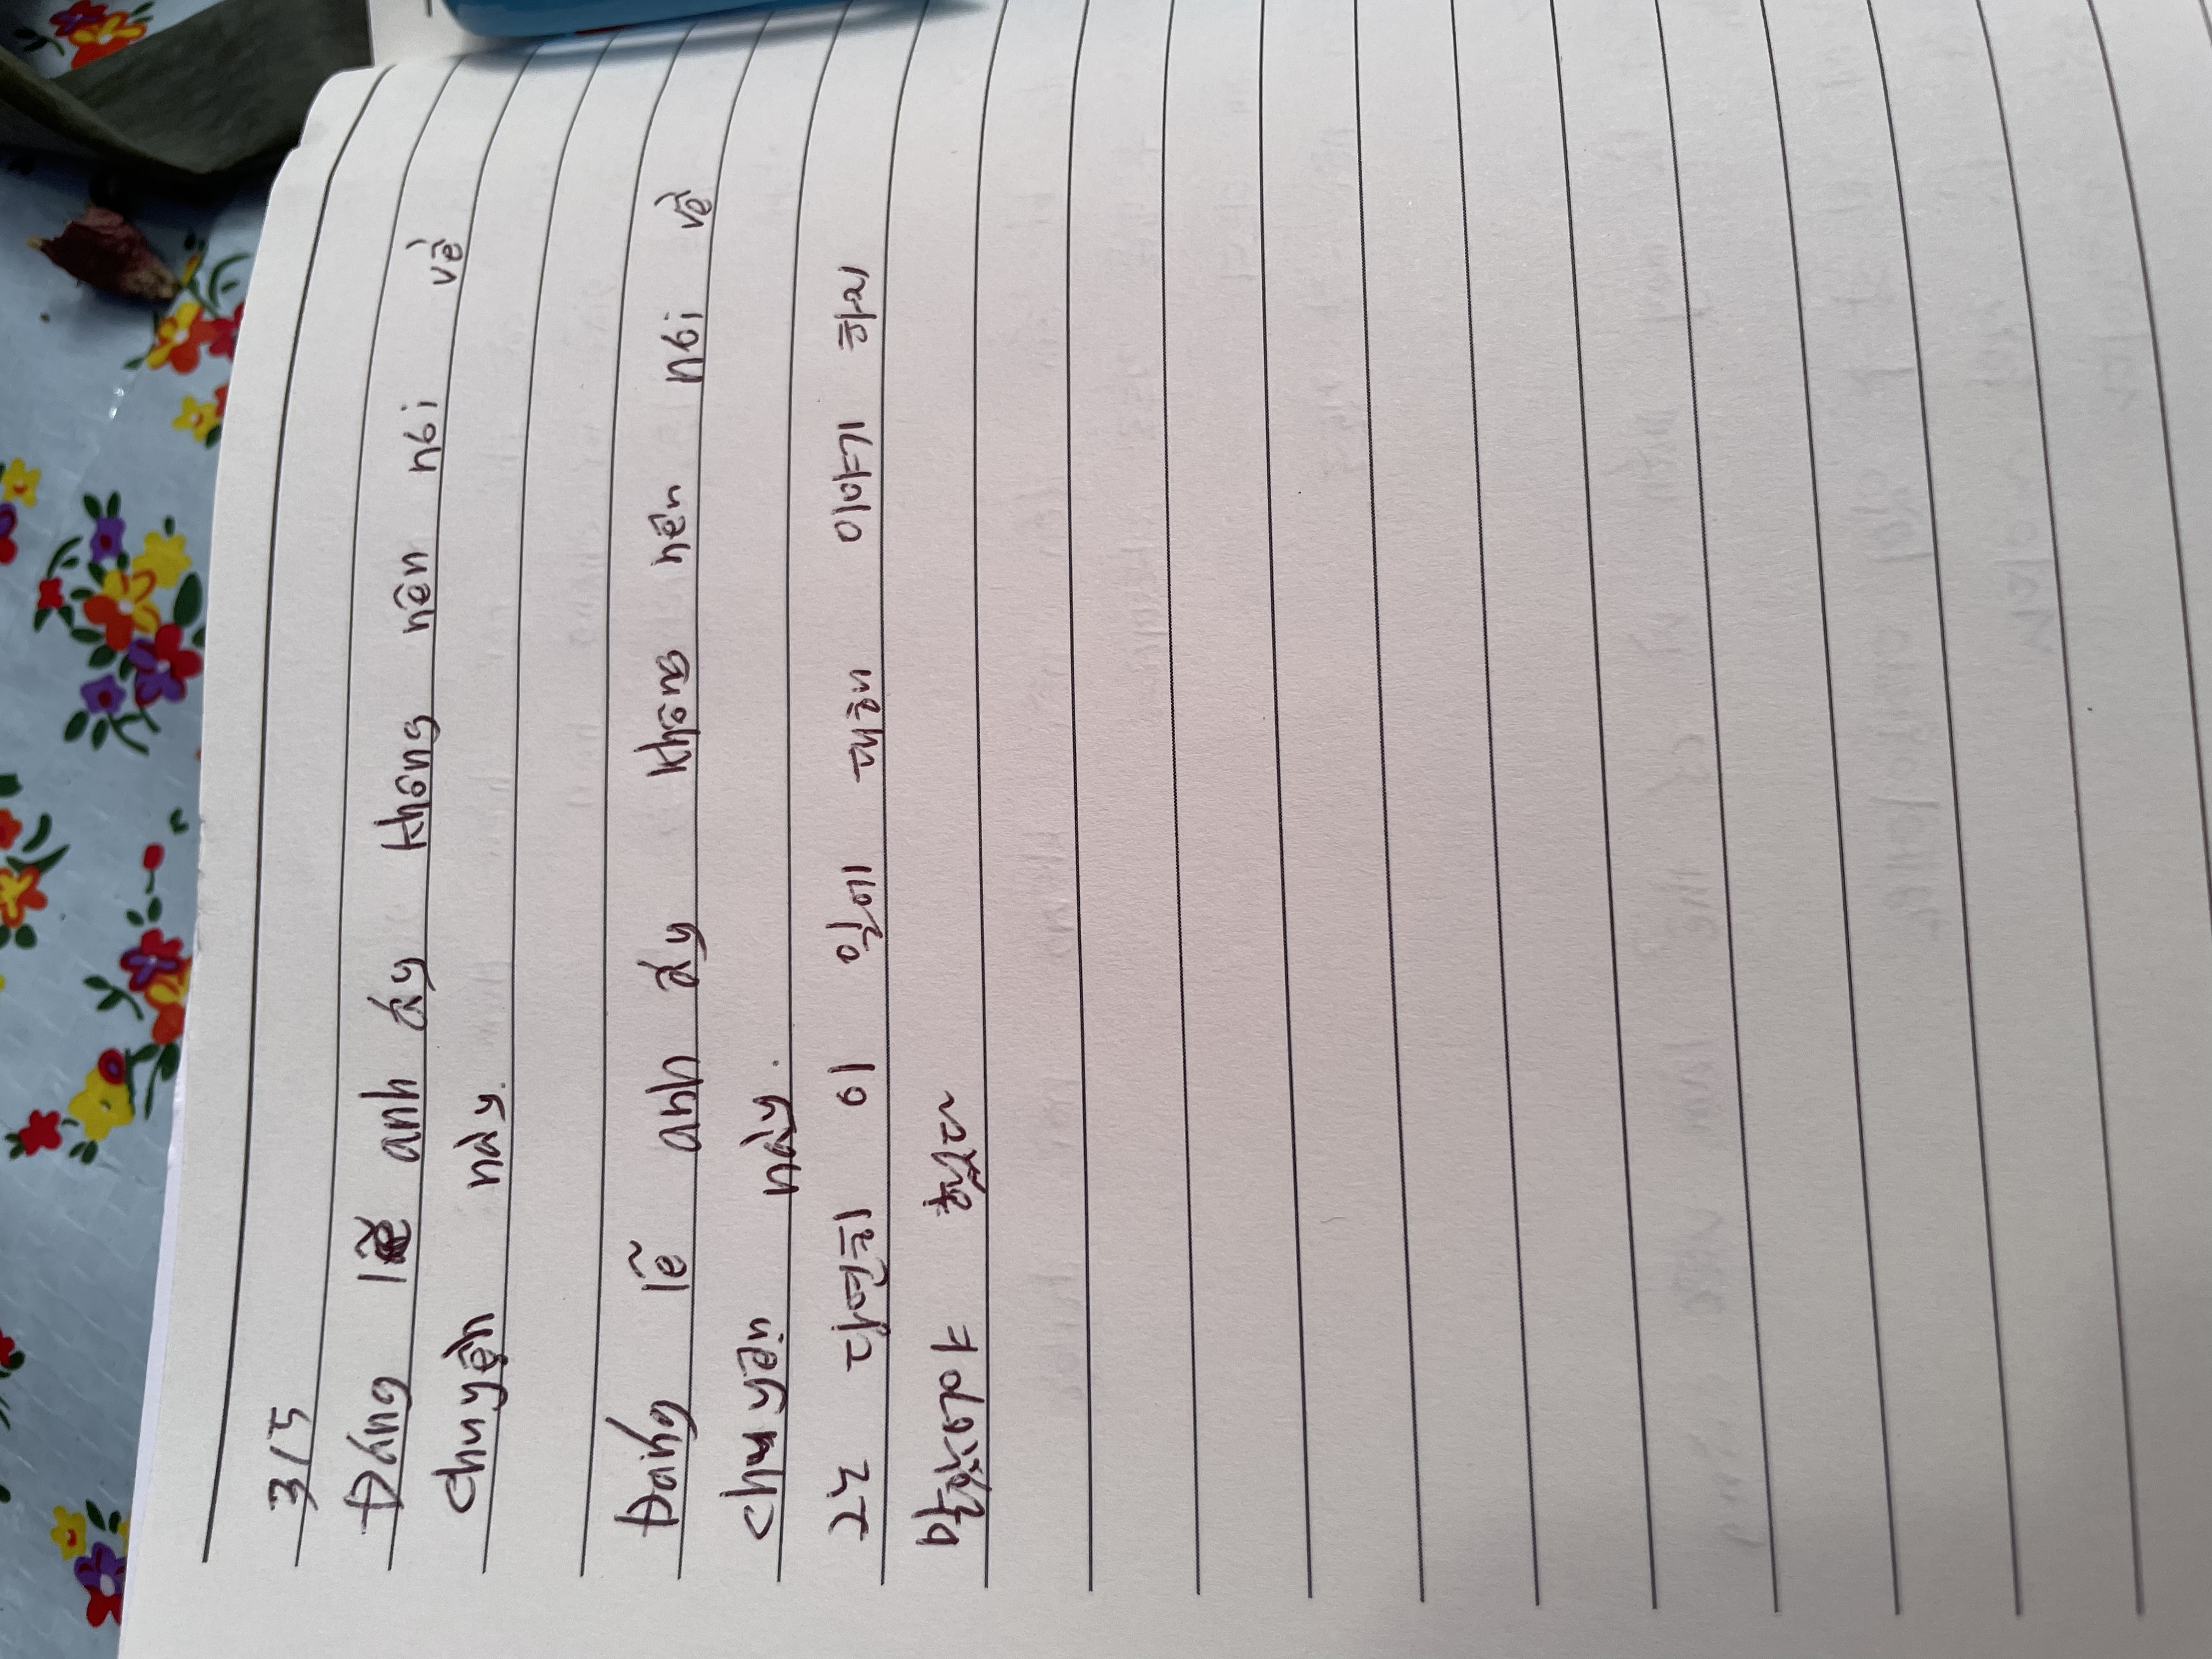 3/5
Đáng lẽ anh ấy không nên nói về
chuyện này.
Đáng lẽ anh ấy không nên nói về
chuyện này.
그는 당연히 이 일에 관해 이야기 하지
말았어야 했다~